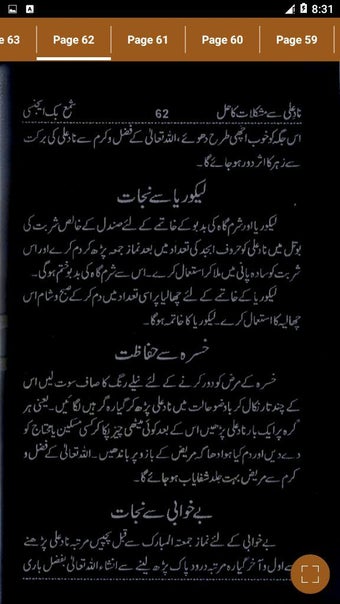 8:31
e 63 Page 62 Page 61 Page 60 Page 59
نادعلی سے مشکلات کا حل 62 شمع بک ایجنسی
اس جگہ کو خوب اچھی طرح دھوئے، اللہ تعالیٰ کے فضل و کرم سے نادعلی کی برکت
سے زہر کا اثر دور ہو جائے گا۔
لیکوریا سے نجات
لیکوریا اور شرم گاہ کی بدبو کے خاتمے کے لئے صندل کے خالص شربت کی
بوتل میں نادعلی کو حروف ابجد کی تعداد میں بعد نماز جمعہ پڑھ کر دم کرے اور اس
شربت کو سادہ پانی میں ملا کر استعمال کرے۔ اس سے شرم گاہ کی بدبو ختم ہوگی۔
لیکوریا کے خاتمے کے لئے چھالیا پر اسی تعداد میں دم کر کے صبح و شام اس
چھالیہ کا استعمال کرے۔ لیکوریا کا خاتمہ ہوگا۔
خسرہ سے حفاظت
خسرہ کے مرض کو دور کرنے کے لئے نیلے رنگ کا صاف سوت لیں اس
کے چند تار نکال کر باوضو حالت میں نادعلی پڑھ کر گیارہ گرہیں لگائیں۔ یعنی ہر
گرہ پر ایک بار نادعلی پڑھیں اس کے بعد کوئی میٹھی چیز پکا کر کسی مسکین یا محتاج کو
دے دیں اور دم کیا ہوا دھاگہ مریض کے بازو پر باندھیں۔ اللہ تعالیٰ کے فضل و
کرم سے مریض بہت جلد شفایاب ہو جائے گا۔
بے خوابی سے نجات
بے خوابی کے لئے نماز جمعتہ المبارک سے قبل پچیس مرتبہ نادعلی پڑھنے
سے اول و آخر گیارہ مرتبہ درود پاک پڑھ لینے سے انشاء اللہ تعالیٰ بفضل باری